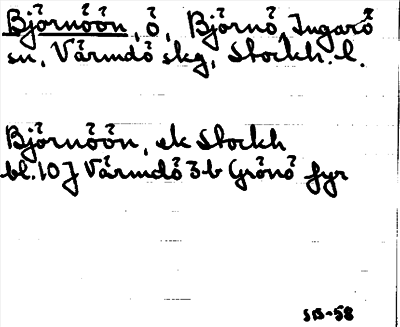 Björnöön, ö, Björnö, Ingarö
sn, Värmdö skg, Stockh. l.
Björnöön, ek Stockh
bl. 10J Värmdö 3b Grönö fyr
SB-58